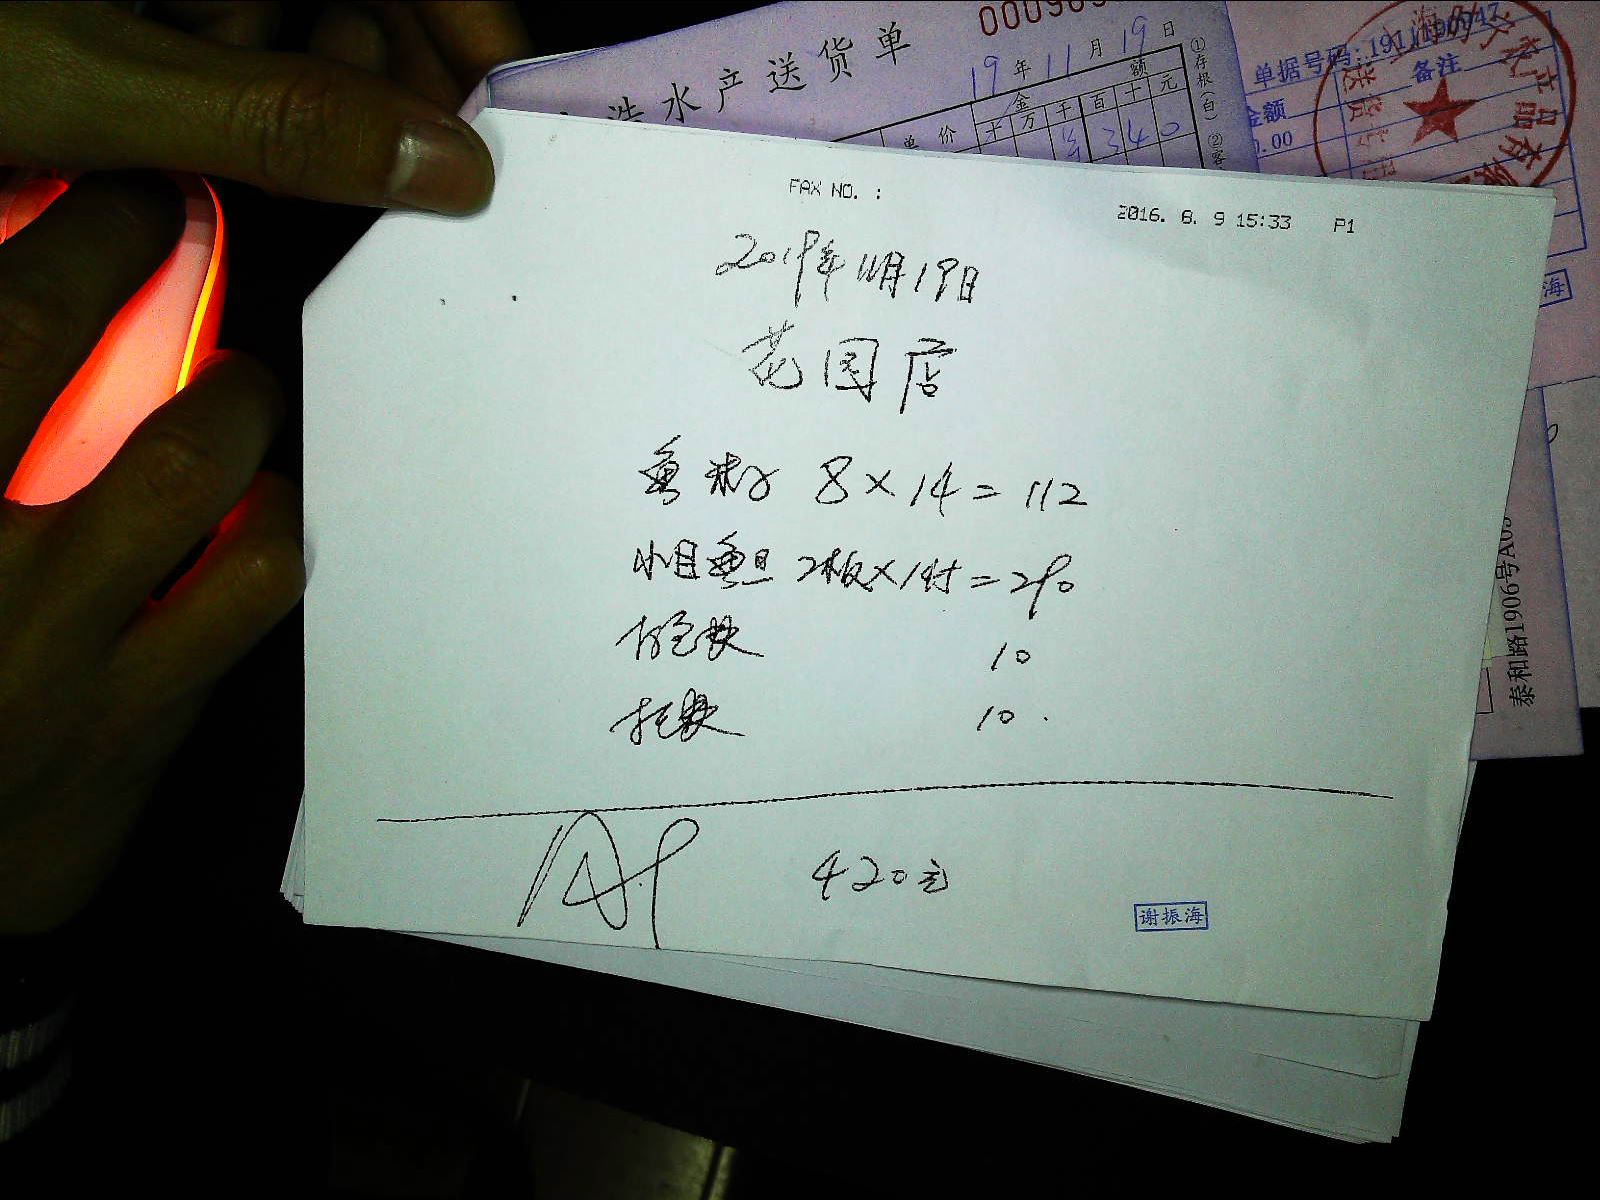 水产送货单
00090
19年11月19日
单价
金额
万千百十元
340
①存根(白)
②客
单据号码:
备注
金额
0.00
产品有
FAX NO. :
2016. 8. 9 15:33 P1
2019年11月19日
花园店
鱼 8×14=112
小目鱼旦 2板×145=290
10
10
420元
谢振海
海
泰和路1906号A05